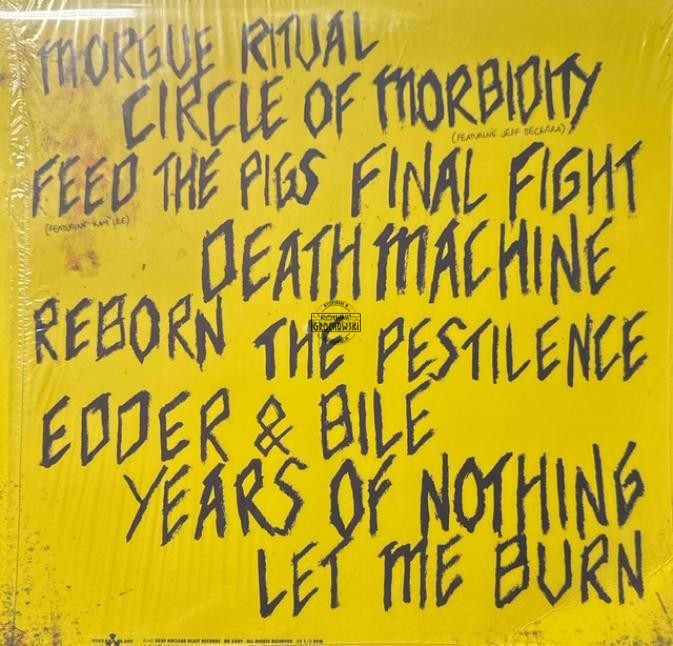 MORGUE RITUAL
CIRCLE OF MORBIDITY
(FEATURING JEFF BECERRA)
FEED THE PIGS FINAL FIGHT
(FEATURING KAM LEE)
DEATH MACHINE
REBORN THE PESTILENCE
GROCHOWSKI
EDDER & BILE
YEARS OF NOTHING
LET ME BURN
NUCLEAR BLAST RECORDS
ALL RIGHTS RESERVED
33 1/3 RPM